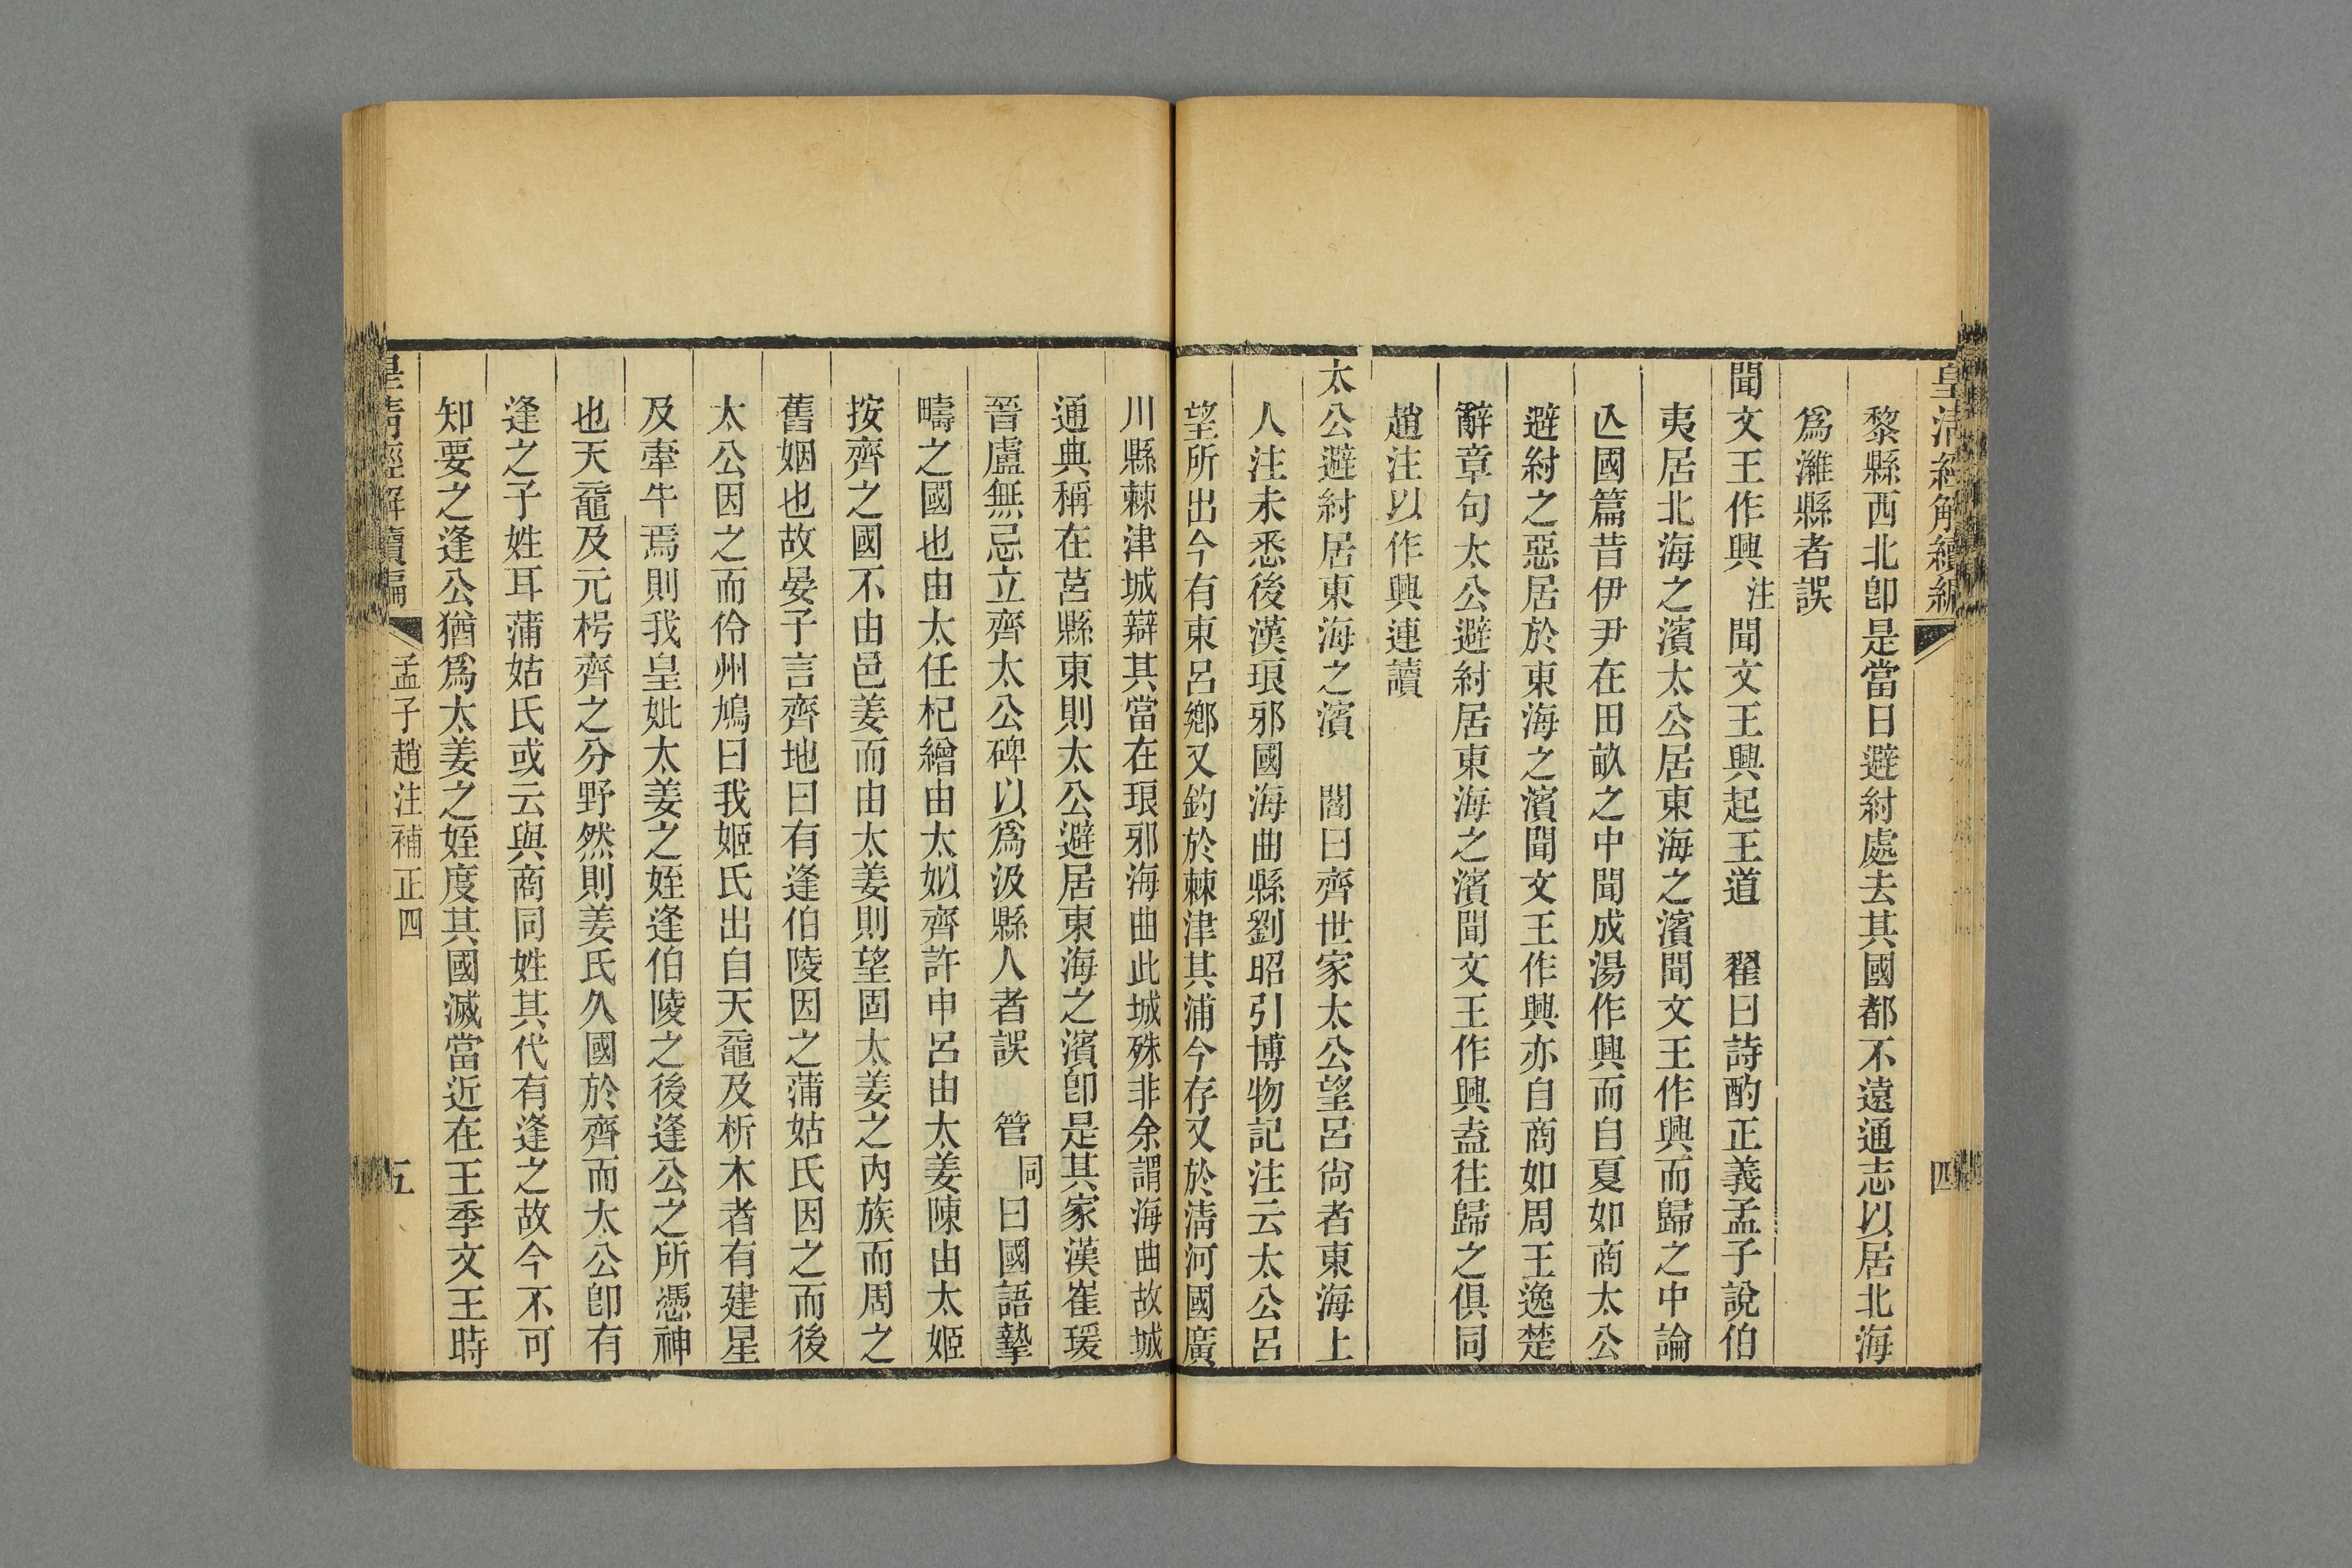 皇清經解續編
四
黎縣西北卽是當日避紂處去其國都不遠通志以居北海
爲濰縣者誤
聞文王作興注聞文王興起王道　翟曰詩酌正義孟子說伯
夷居北海之濱太公居東海之濱聞文王作興而歸之中論
亾國篇昔伊尹在田畝之中聞成湯作興而自夏如商太公
避紂之惡居於東海之濱聞文王作興亦自商如周王逸楚
辭章句太公避紂居東海之濱聞文王作興盍往歸之俱同
趙注以作興連讀
太公避紂居東海之濱　閻曰齊世家太公望呂尙者東海上
人注未悉後漢琅邪國海曲縣劉昭引博物記注云太公呂
望所出今有東呂鄉又釣於棘津其浦今存又於淸河國廣
川縣棘津城辯其當在琅邪海曲此城殊非余謂海曲故城
通典稱在莒縣東則太公避居東海之濱卽是其家漢崔瑗
晉盧無忌立齊太公碑以爲汲縣人者誤　管同曰國語摯
疇之國也由太任杞繒由太姒齊許申呂由太姜陳由太姬
按齊之國不由邑姜而由太姜則望固太姜之內族而周之
舊姻也故晏子言齊地曰有逢伯陵因之蒲姑氏因之而後
太公因之而伶州鳩曰我姬氏出自天黿及析木者有建星
及牽牛焉則我皇妣太姜之姪逢伯陵之後逢公之所憑神
也天黿及元枵齊之分野然則姜氏久國於齊而太公卽有
逢之子姓耳蒲姑氏或云與商同姓其代有逢之故今不可
知要之逢公猶爲太姜之姪度其國滅當近在王季文王時
皇清經解續編
孟子趙注補正四
五